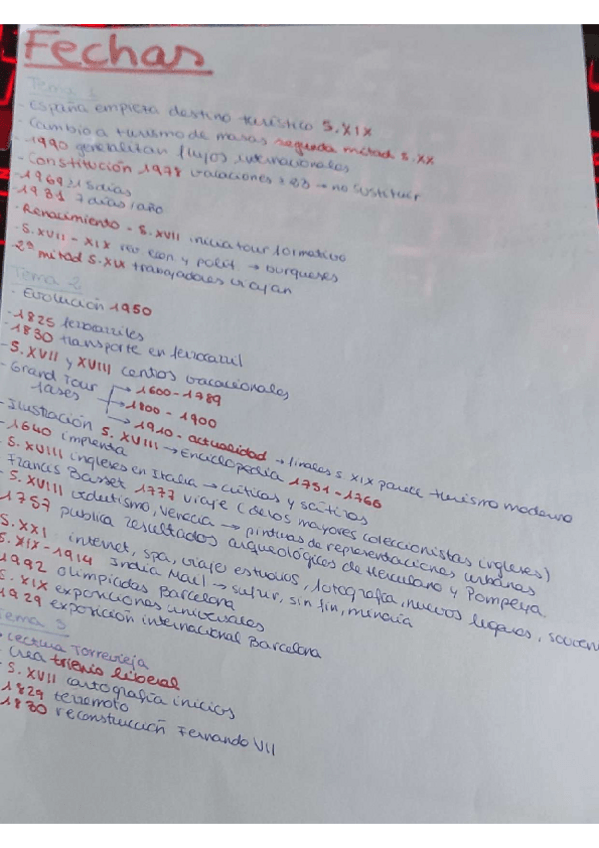 Fechas
Tema 1
- España empieza destino turístico S.XIX
- Cambio a turismo de masas segunda mitad s.XX
- 1990 generalitan flujos internacionales
- Constitución 1978 vacaciones → no sustituir
- 1969 21 5 días
- 1981 7 días/año
- Renacimiento - S.XVII inicia tour formativo
- S.XVII - XIX rev econ. y polit → burgueses
- 2ª mitad S.XIX trabajadores viajan
Tema 2
- Evolución 1950
- 1825 ferrocarriles
- 1830 transporte en ferrocarril
- S.XVII y XVIII centros vacacionales
- Grand Tour fases → 1600-1789
→ 1800-1900
→ 1910-actualidad → finales s XIX parece turismo moderno
- Ilustración S.XVIII → Enciclopedia 1751-1766
- 1640 imprenta
- S.XVIII ingleses en Italia → críticas y sátiras
Francis Basset 1777 viaje (de los mayores coleccionistas ingleses)
- S.XVIII vedutismo, Venecia → pinturas de representaciones urbanas
1757 publica resultados arqueológicos de Herculano y Pompeya
S.XXI internet, spa, viaje estudios, fotografía, nuevos lugares, souven
S.XIX-1914 India Mail → sufur, sin fin, minoría
1992 olimpiadas Barcelona
S.XIX exposiciones universales
1929 exposición internacional Barcelona
Tema 3
- Lectura Torrevieja
- Crea trienio liberal
- S.XVII cartografía inicios
1829 terremoto
1830 reconstrucción Fernando VII